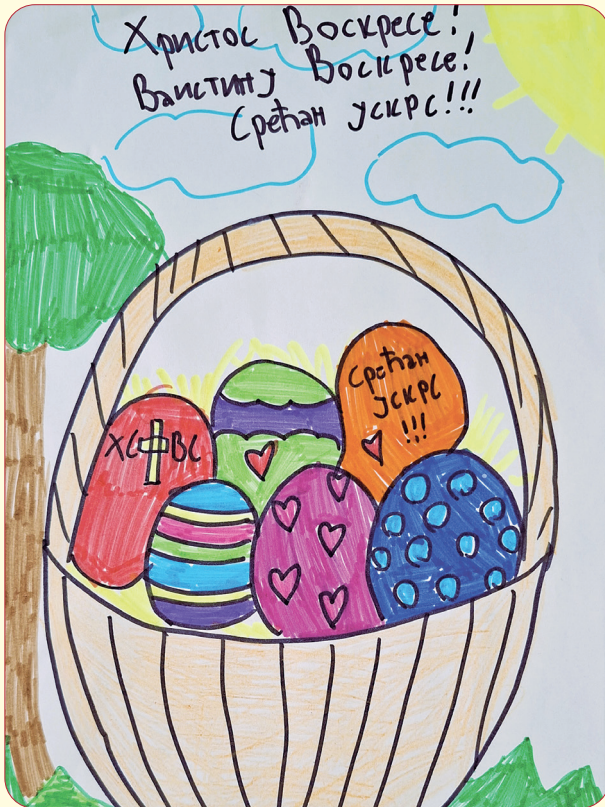 Христос Воскресе!
Ваистину Воскресе!
Срећан ускрс!!!
Срећан
ускрс
!!!
ХС ВС